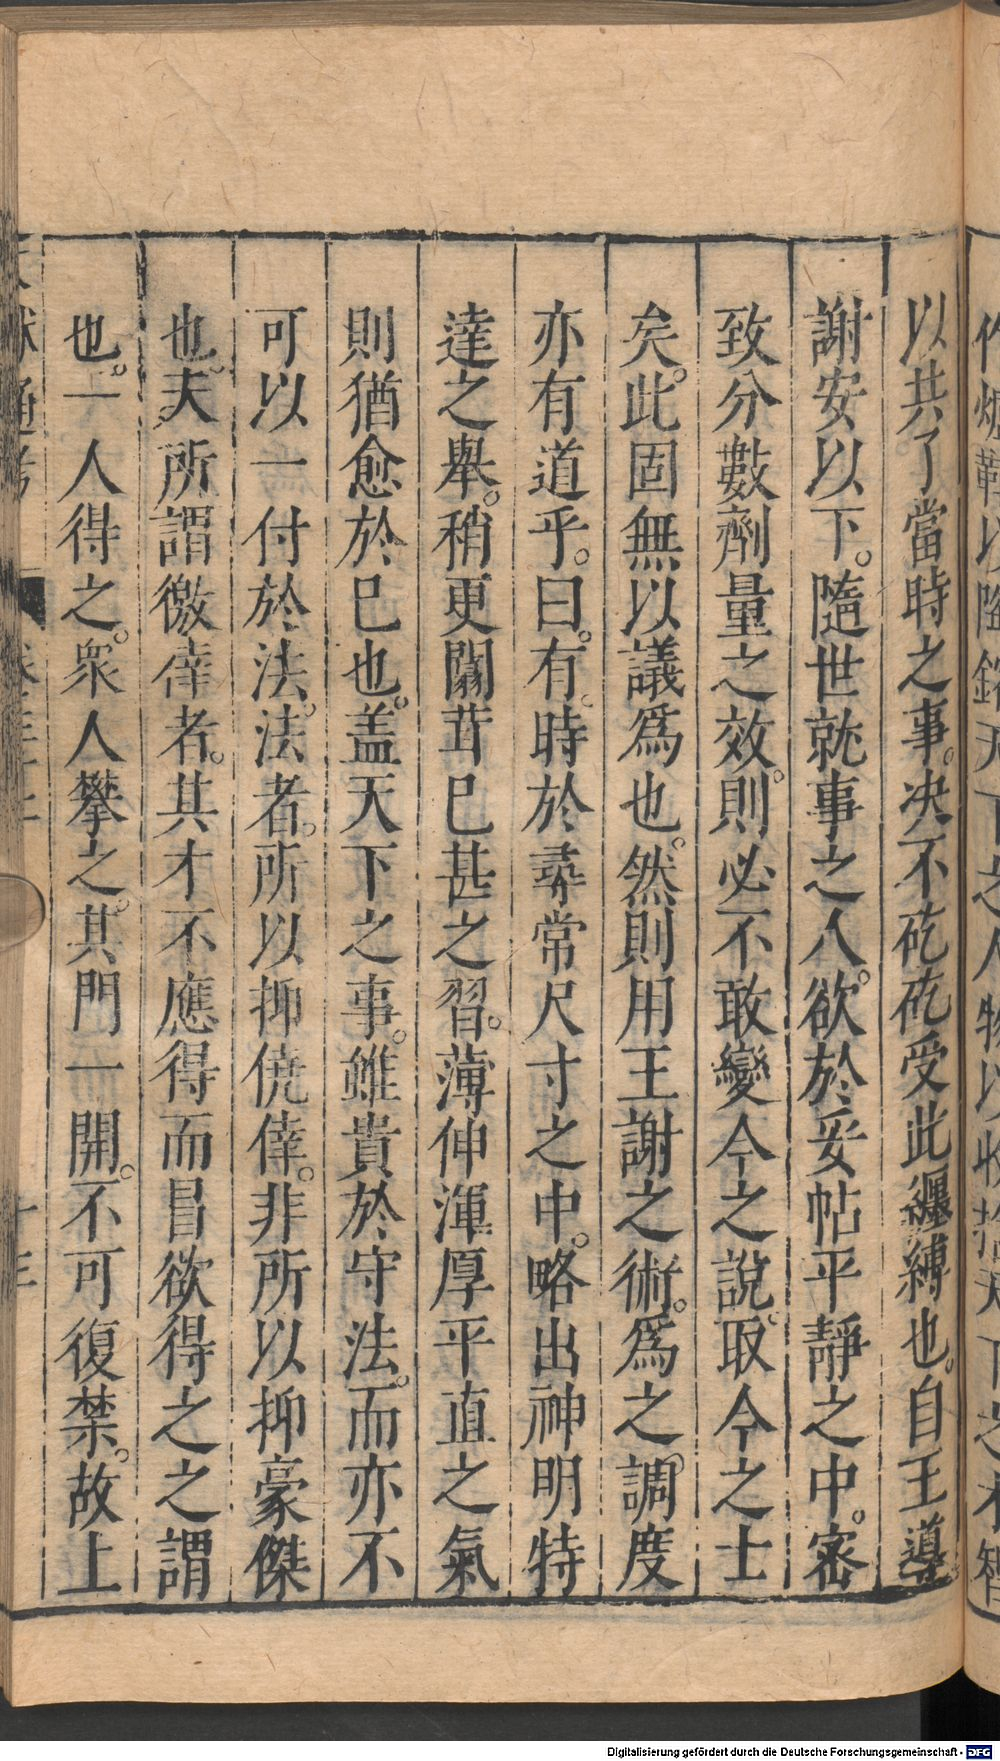 以共了當時之事。决不矻矻受此纒縛也。自王導
謝安以下。隨世就事之人。欲於妥帖平靜之中。密
致分數劑量之效。則必不敢變今之說。取今之士
矣。此固無以議爲也。然則用王謝之術。爲之調度
亦有道乎。曰。有時於尋常尺寸之中。略出神明特
達之舉。稍更闒茸已甚之習。薄伸渾厚平直之氣
則猶愈於已也。盖天下之事。雖貴於守法。而亦不
可以一付於法。法者。所以抑僥倖。非所以抑豪傑
也。夫所謂徼倖者。其才不應得而冒欲得之之謂
也。一人得之。衆人攀之。其門一開。不可復禁。故上
Digitalisierung gefördert durch die Deutsche Forschungsgemeinschaft - DFG